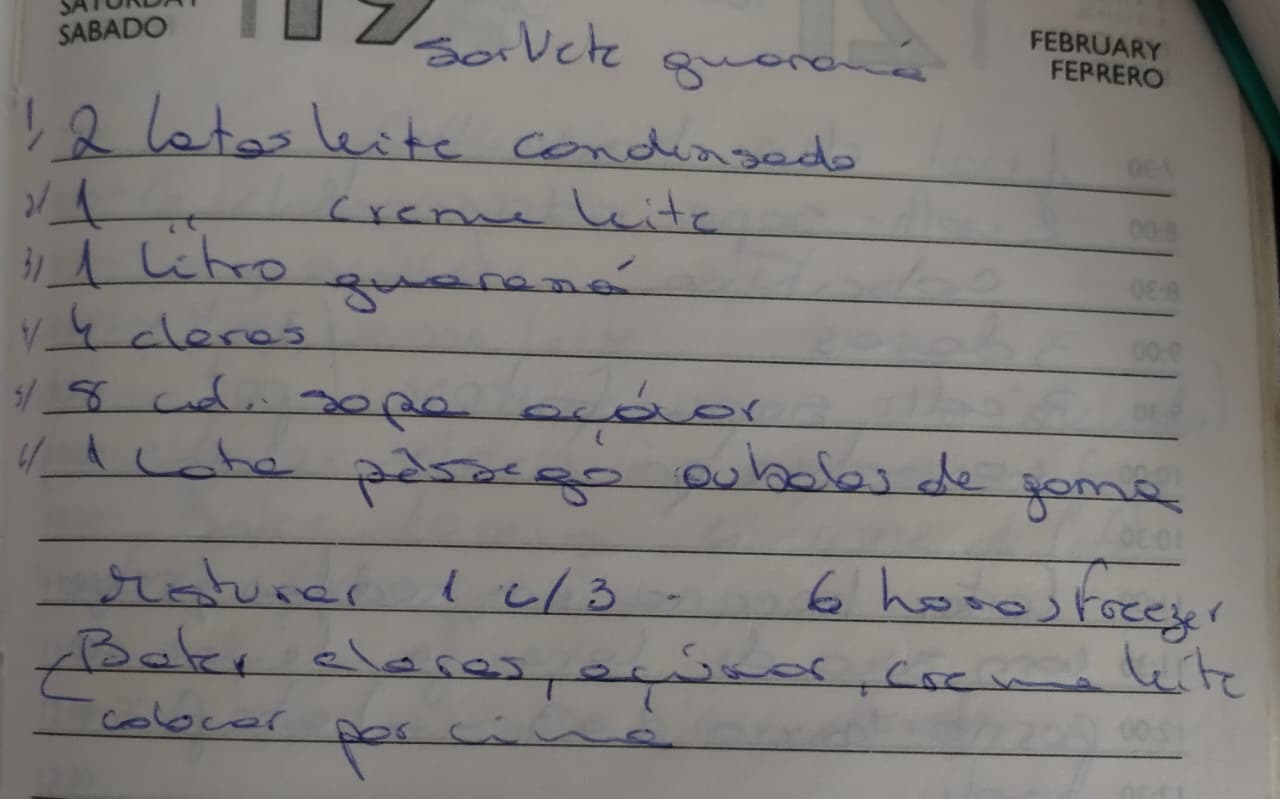 SATURDAY
SABADO
19
FEBRUARY
FEPRERO
Sorvete guaraná
1/ 2 latas leite condensado
2/ 1 " creme leite
3/ 1 litro guaraná
4/ 4 claras
5/ 8 col. sopa açúcar
6/ 1 lata pêssego ou balas de goma
Misturar 1 c/3 - 6 horas freezer
Bater claras, açúcar, creme leite
colocar por cima
7:30
8:00
8:30
9:00
9:30
10:00
10:30
12:00
12:30